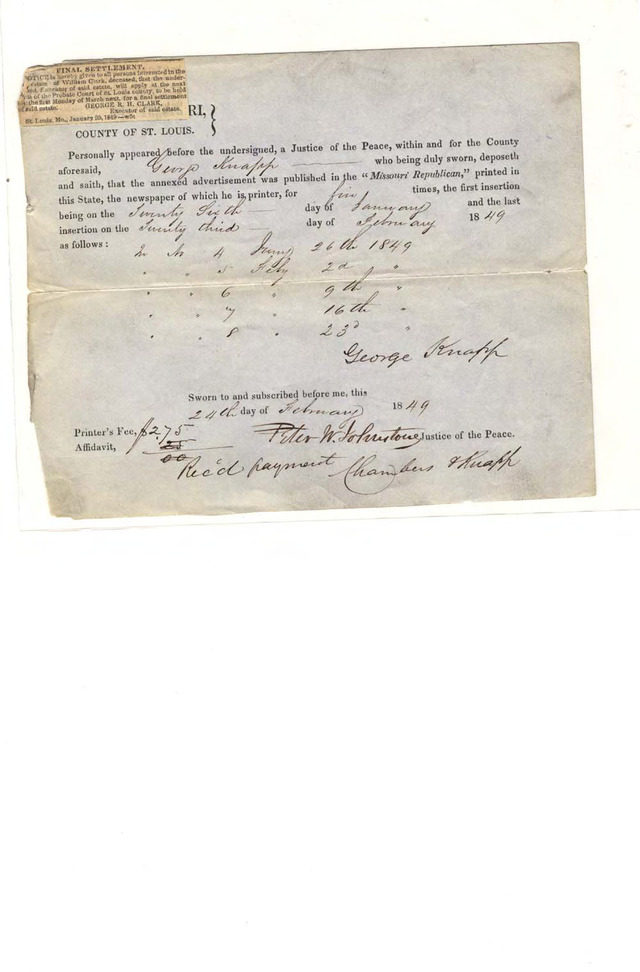 FINAL SETTLEMENT.
NOTICE is hereby given to all persons interested in the
estate of William Clark, deceased, that the under-
signed, Executor of said estate, will apply at the next
term of the Probate Court of St. Louis county, to be held
on the first Monday of March next, for a final settlement
of said estate.
GEORGE R. H. CLARK,
Executor of said estate.
St. Louis, Mo., January 25, 1849
RI,
COUNTY OF ST. LOUIS.
Personally appeared before the undersigned, a Justice of the Peace, within and for the County
aforesaid, George Knapp who being duly sworn, deposeth
and saith, that the annexed advertisement was published in the "Missouri Republican," printed in
this State, the newspaper of which he is printer, for five times, the first insertion
being on the Twenty Sixth day of January and the last
insertion on the Twenty third day of February 1849
as follows:
In No 4 Jany 26th 1849
" " 5 Feby 2d "
" " 6 " 9th "
" " 7 " 16th "
" " 8 " 23d "
George Knapp
Sworn to and subscribed before me, this
24th day of February 1849
Printer's Fee, $2.75
Affidavit,
Peter W. Johnstone, Justice of the Peace.
Rec'd payment Chambers & Knapp